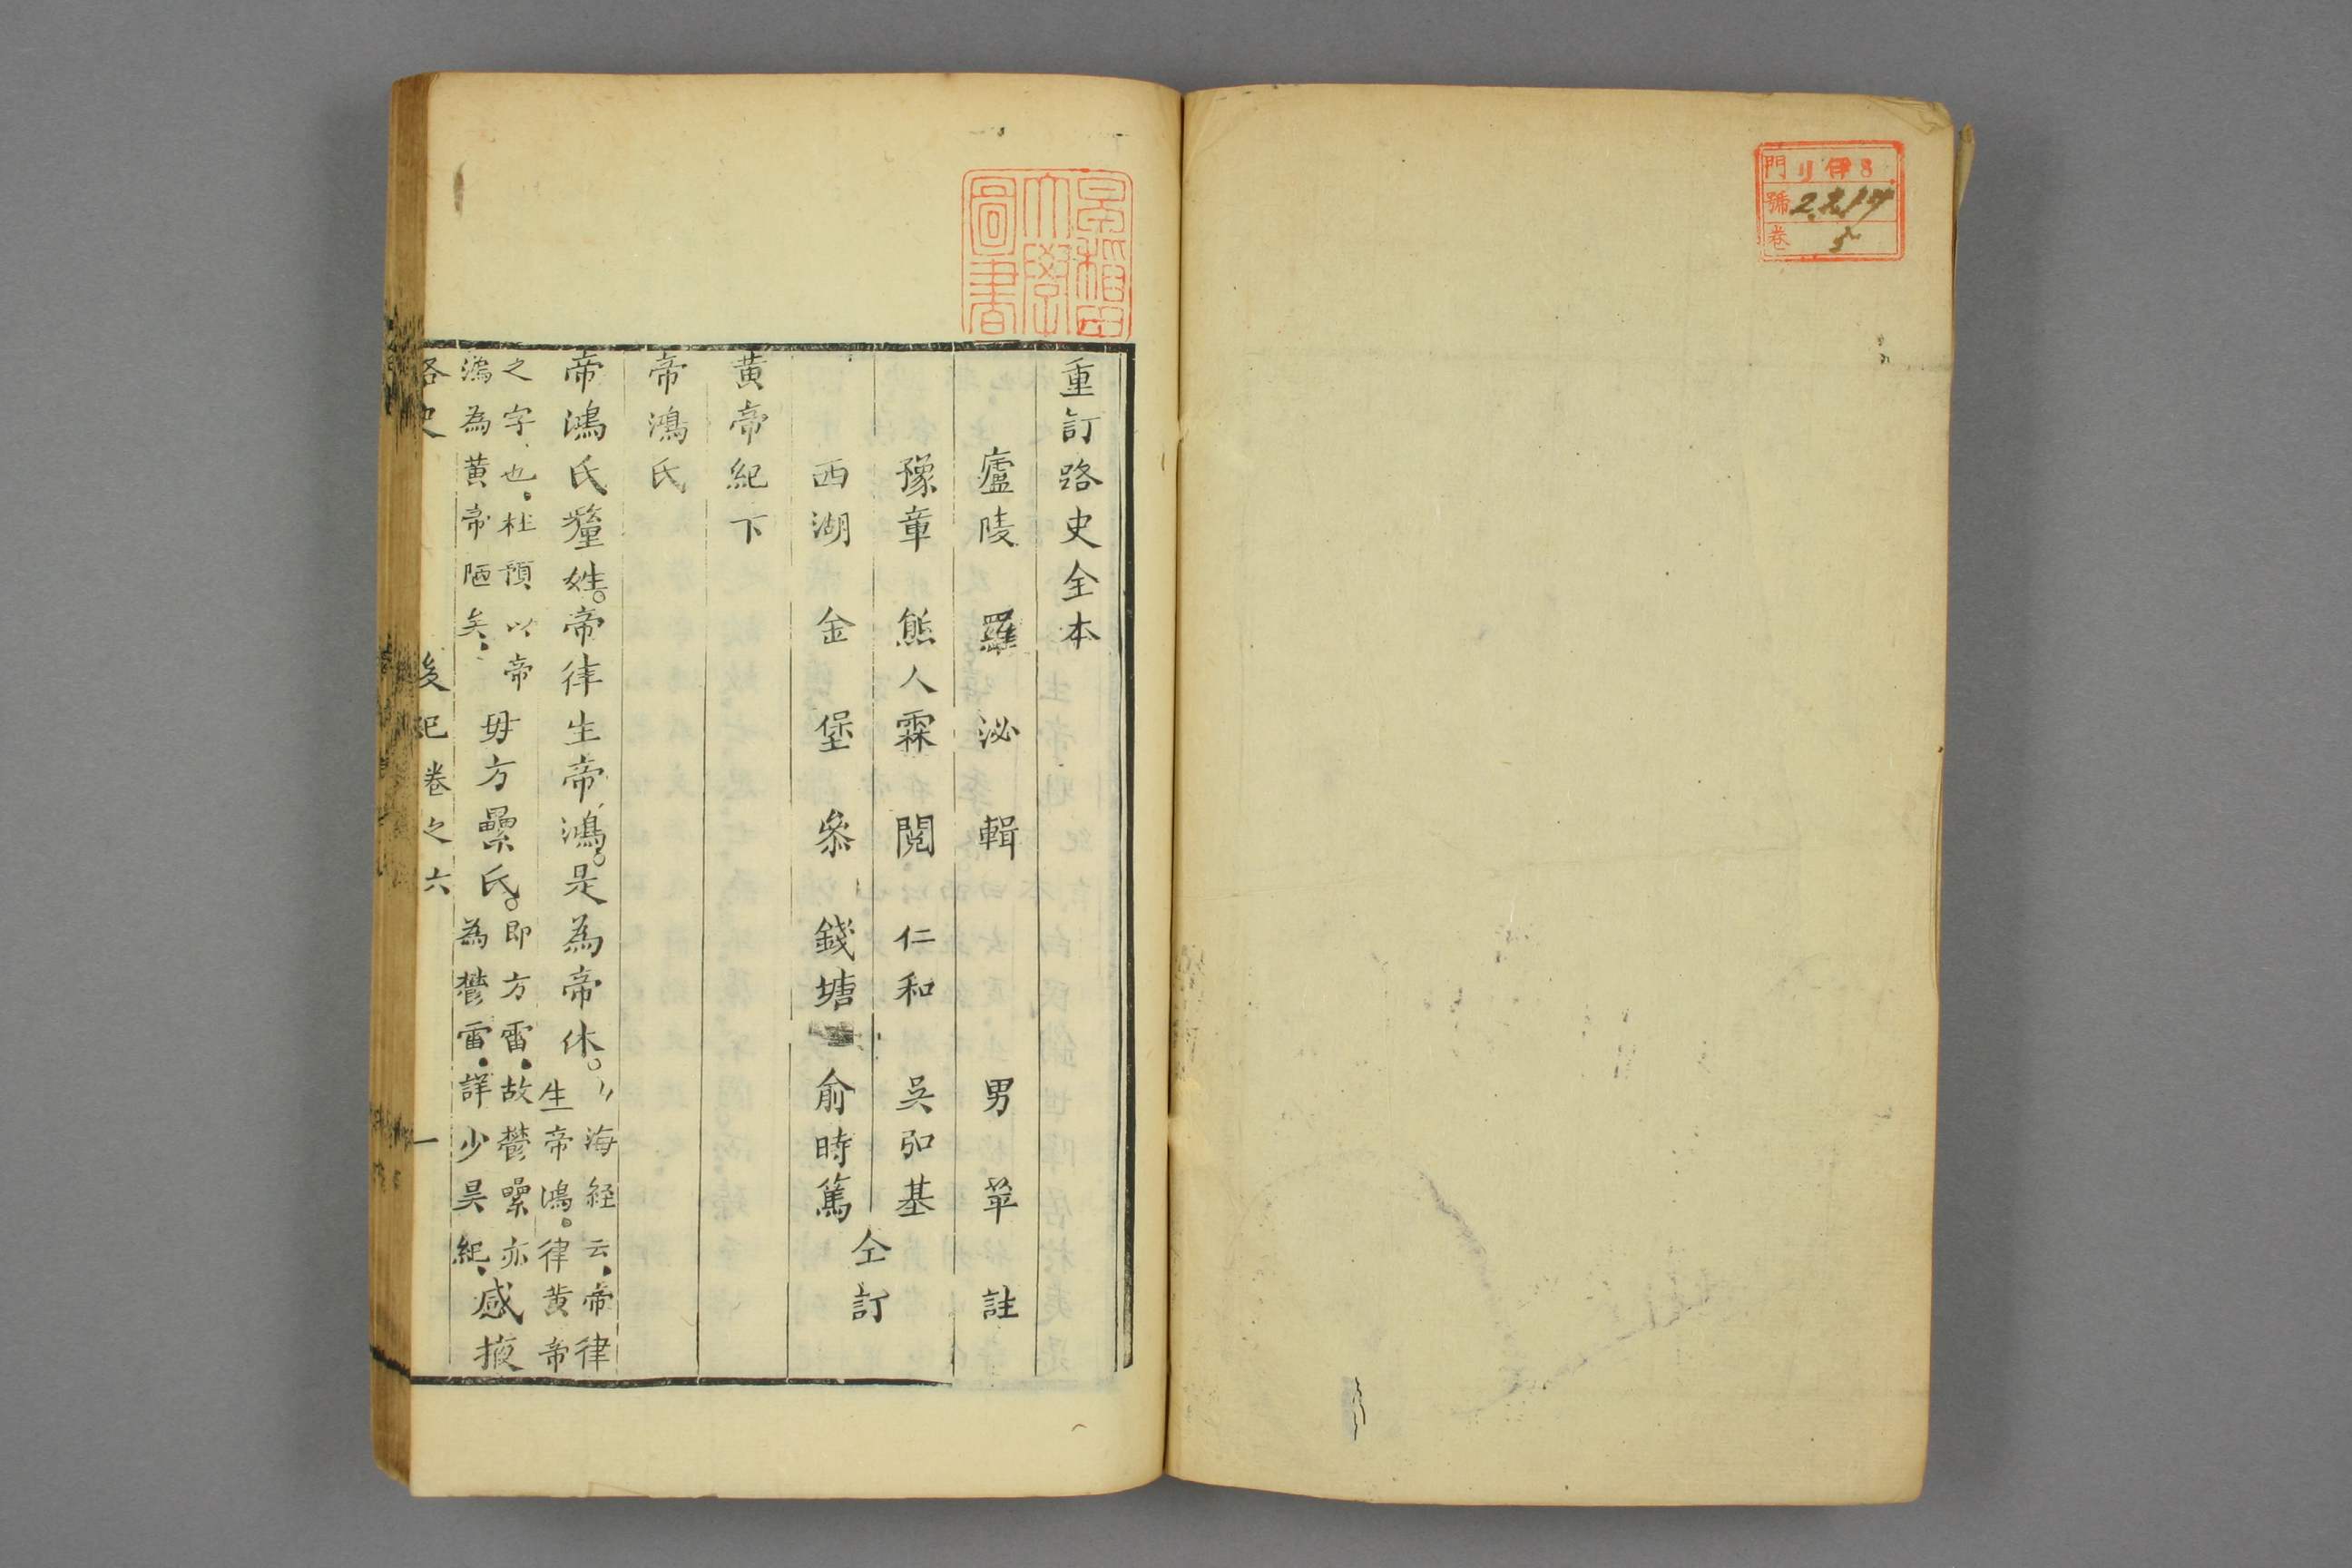 門 リ 伊8
號 2214
卷 5
早稲田
大學
圖書
重訂路史全本
廬陵 羅泌 輯 男 苹 註
豫章 熊人霖 閱 仁和 吳弘基
西湖 金堡 叅 錢塘 俞時篤
仝訂
黄帝紀下
帝鴻氏
帝鴻氏釐姓。帝律生帝鴻。是為帝休。
海経云、帝律
生帝鴻。律黄帝
之字也、杜預以帝
鴻為黄帝陋矣、
母方纍氏。
即方雷、故
為
雷、詳少昊紀、
感掖
路史 後紀卷之六 一